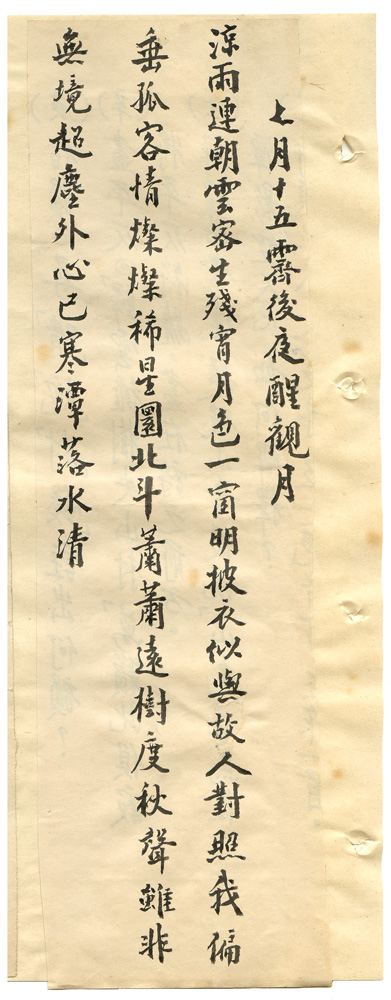 七月十五霽後夜醒觀月
涼雨連朝雲密生殘宵月色一窗明披衣似與故人對照我偏
垂孤客情燦燦稀星圍北斗蕭蕭遠樹度秋聲雖非
無境超塵外心已寒潭落水清